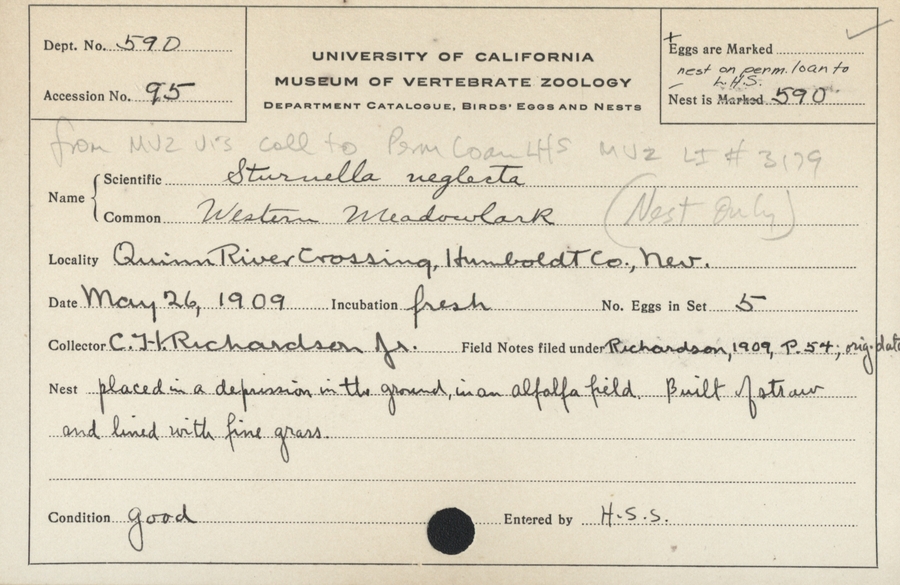 Dept. No. 590
Accession No. 95
UNIVERSITY OF CALIFORNIA
MUSEUM OF VERTEBRATE ZOOLOGY
DEPARTMENT CATALOGUE, BIRDS' EGGS AND NESTS
+
Eggs are Marked
nest on perm. loan to
LHS.
Nest is Marked 590
from MVZ Vis coll to Perm Loan LHS MVZ LI # 3179
Name
Scientific Sturnella neglecta
Common Western Meadowlark (Nest Only)
Locality Quinn River Crossing, Humboldt Co., Nev.
Date May 26, 1909 Incubation fresh No. Eggs in Set 5
Collector C. H. Richardson Jr. Field Notes filed under Richardson, 1909, P. 54, orig. data
Nest placed in a depression in the ground, in an alfalfa field. Built of straw
and lined with fine grass.
Condition good Entered by H.S.S.